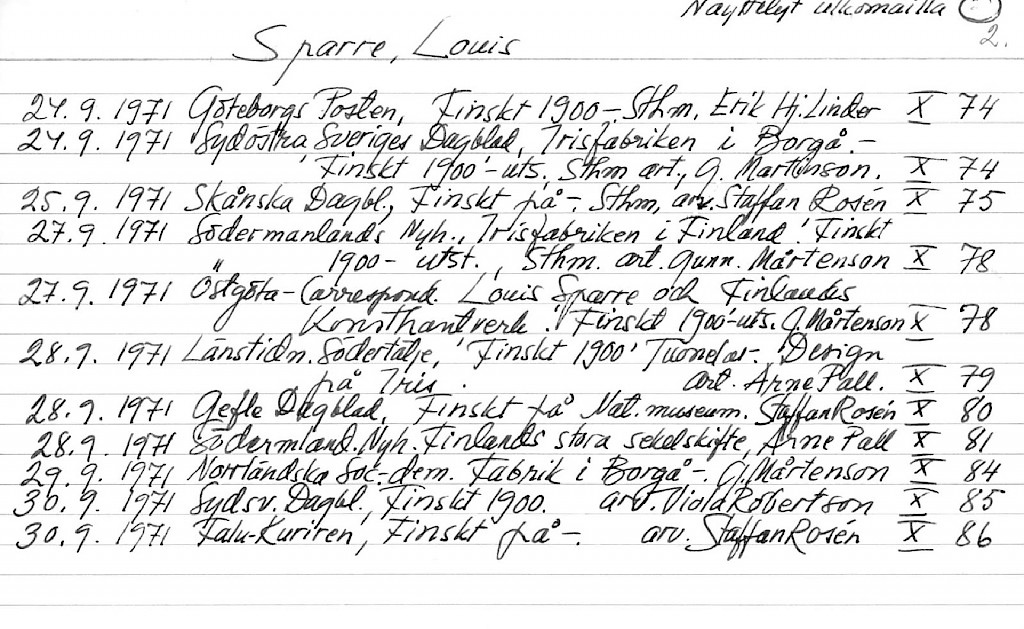 Näyttelyt ulkomailla
2.
Sparre, Louis
24.9.1971 Göteborgs Posten, Finskt 1900-Sthm, Erik Hj. Linder X 74
24.9.1971 Sydöstra Sveriges Dagblad, Irisfabriken i Borgå.-
'Finskt 1900'-uts. Sthm art., G. Martinson. X 74
25.9.1971 Skånska Dagbl., Finskt på-. Sthm, arv. Staffan Rosén X 75
27.9.1971 Södermanlands Nyh., Irisfabriken i Finland! Finskt
1900- utst., Sthm. art. Gunn. Mårtenson X 78
27.9.1971 Östgöta-Correspond. Louis Sparre och Finlands
Konsthantverk! 'Finskt 1900'-uts. G. Mårtenson X 78
28.9.1971 Länstidn. Södertälje, 'Finskt 1900' Design
på Iris. art. Arne Pall. X 79
28.9.1971 Gefle Dagblad, Finskt på Nat. museum. Staffan Rosén X 80
28.9.1971 Södermland. Nyh. Finlands stora sekelskifte, Arne Pall X 81
29.9.1971 Norrländska Soc-dem. Fabrik i Borgå-. G. Mårtenson X 84
30.9.1971 Sydsv. Dagbl., Finskt 1900. arv. Viola Robertson X 85
30.9.1971 Falu-Kuriren, Finskt på-. arv. Staffan Rosén X 86